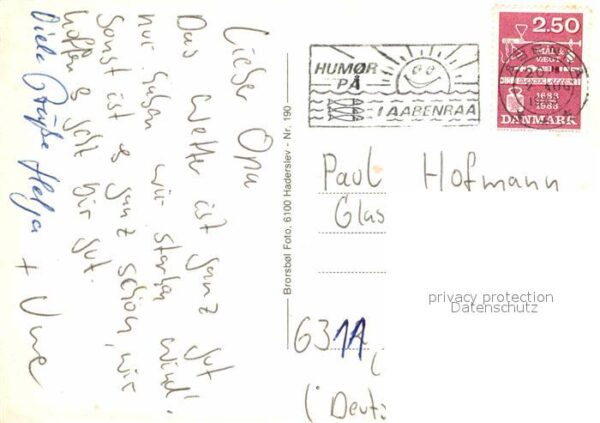 Lieber Opa
Das Wetter ist ganz gut
nur haben wir starken Wind!
Sonst ist es ganz schön, wir
hoffen es geht Dir gut.
Viele Grüße Helga + Uwe
Brorsbøl Foto, 6100 Haderslev - Nr. 190
HUMØR
PÅ
I AABENRAA
2.50
MÅL &
VÆGT
1683
1983
DANMARK
Paul Hofmann
Glas
privacy protection
Datenschutz
6311
(Deut